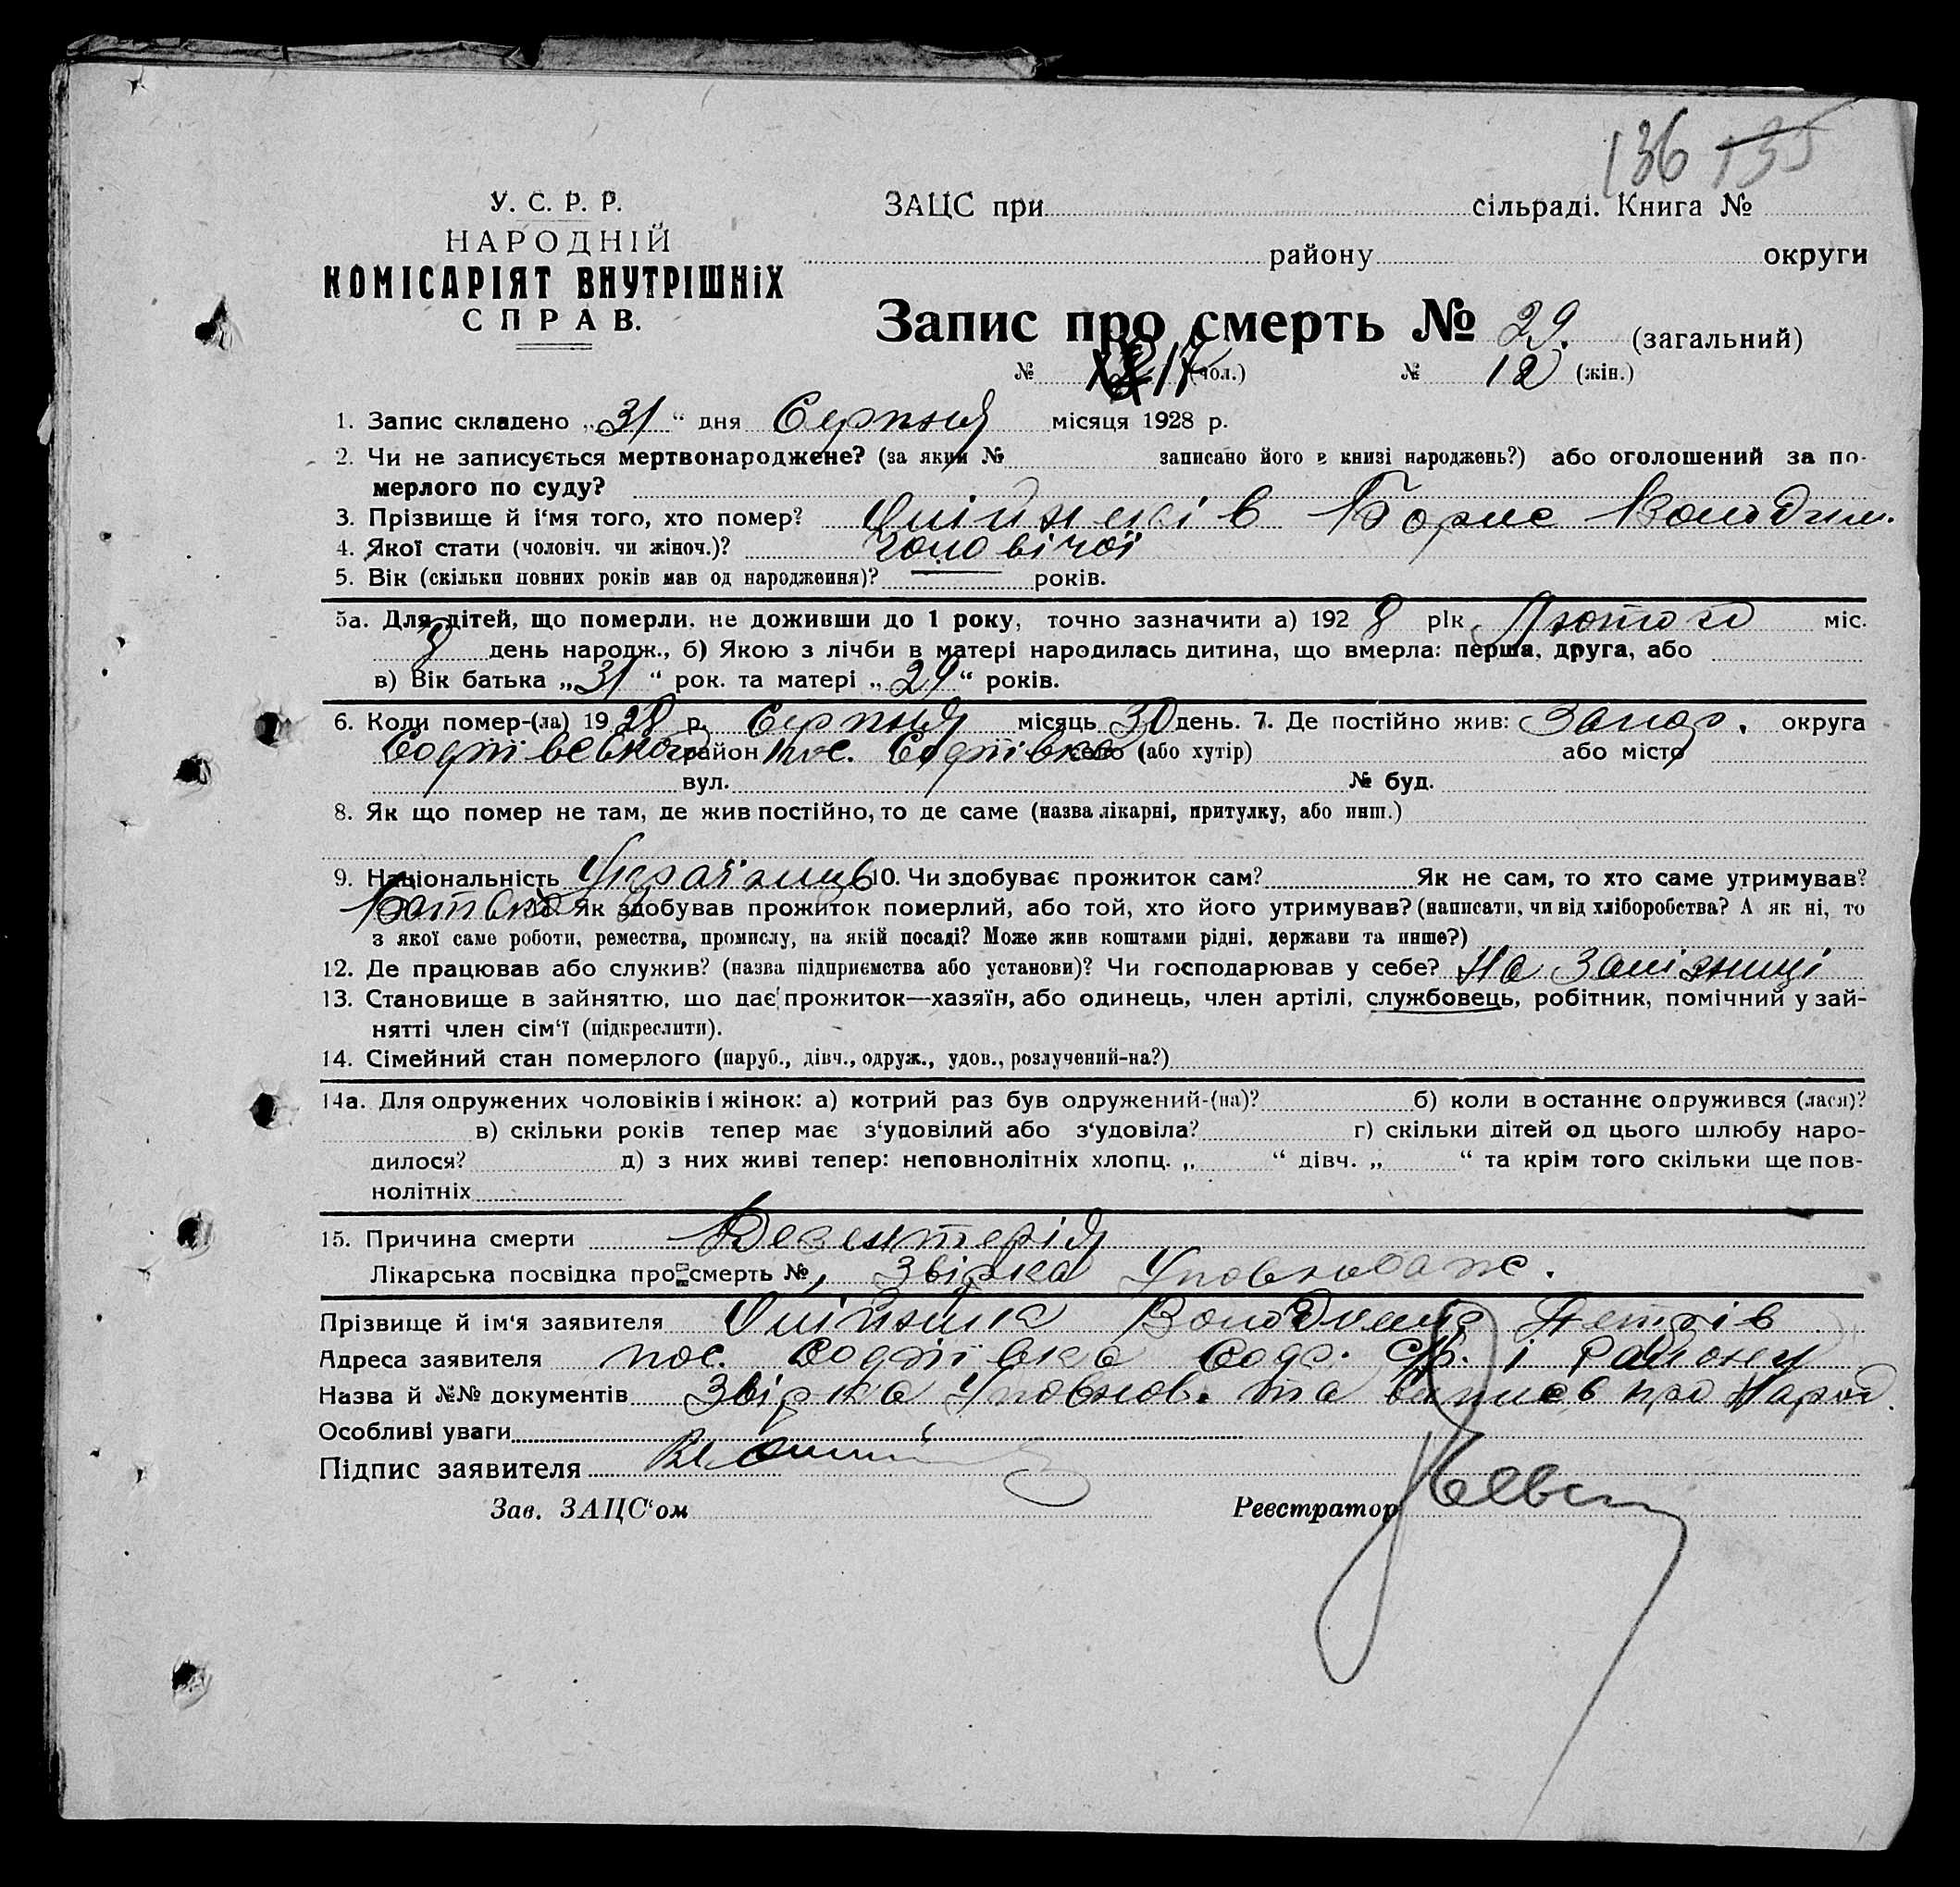 136 135
У. С. Р. Р.
НАРОДНІЙ
КОМІСАРІЯТ ВНУТРІШНІХ
СПРАВ.
ЗАЦС при сільраді. Книга №
району округи
Запис про смерть № 29. (загальний)
№ 17 (чол.) № 12 (жін.)
1. Запис складено „31“ дня Серпня місяця 1928 р.
2. Чи не записується мертвонароджене? (за яким № записано його в книзі народжень?) або оголошений за по-
мерлого по суду?
3. Прізвище й і‘мя того, хто помер? Борис Володим.
4. Якої стати (чоловіч. чи жіноч.)? Чоловічої
5. Вік (скільки повних років мав од народження)? — років.
5а. Для дітей, що померли, не доживши до 1 року, точно зазначити а) 1928 рік Лютого міс.
8 день народж., б) Якою з лічби в матері народилась дитина, що вмерла: перша, друга, або
в) Вік батька „31“ рок. та матері „29“ років.
6. Коли помер-(ла) 1928 р. Серпня місяць 30 день. 7. Де постійно жив: Запор. округа
район пос. село (або хутір) або місто
вул. № буд.
8. Як що помер не там, де жив постійно, то де саме (назва лікарні, притулку, або инш.)
9. Національність Українець 10. Чи здобуває прожиток сам? Як не сам, то хто саме утримував?
Батько Як здобував прожиток померлий, або той, хто його утримував? (написати, чи від хліборобства? А як ні, то
з якої саме роботи, ремества, промислу, на якій посаді? Може жив коштами рідні, держави та инше?)
12. Де працював або служив? (назва підприємства або установи)? Чи господарював у себе? На Залізниці
13. Становище в зайняттю, що дає прожиток—хазяїн, або одинець, член артілі, службовець, робітник, помічний у зай-
нятті член сім‘ї (підкреслити).
14. Сімейний стан померлого (паруб., дівч., одруж., удов., розлучений-на?)
14а. Для одружених чоловіків і жінок: а) котрий раз був одружений-(на)? б) коли в останнє одружився (лася)?
в) скільки років тепер має з‘удовілий або з‘удовіла? г) скільки дітей од цього шлюбу наро-
дилося? д) з них живі тепер: неповнолітніх хлопц. „ “ дівч. „ “ та крім того скільки ще пов-
нолітніх
15. Причина смерти Дезентерія
Лікарська посвідка про смерть № Звірка Уповноваж.
Прізвище й ім‘я заявителя Володимир Петрів
Адреса заявителя пос. і Району
Назва й №№ документів Звірка Уповнов. та про Народ.
Особливі уваги
Підпис заявителя
Зав. ЗАЦС‘ом Реєстратор